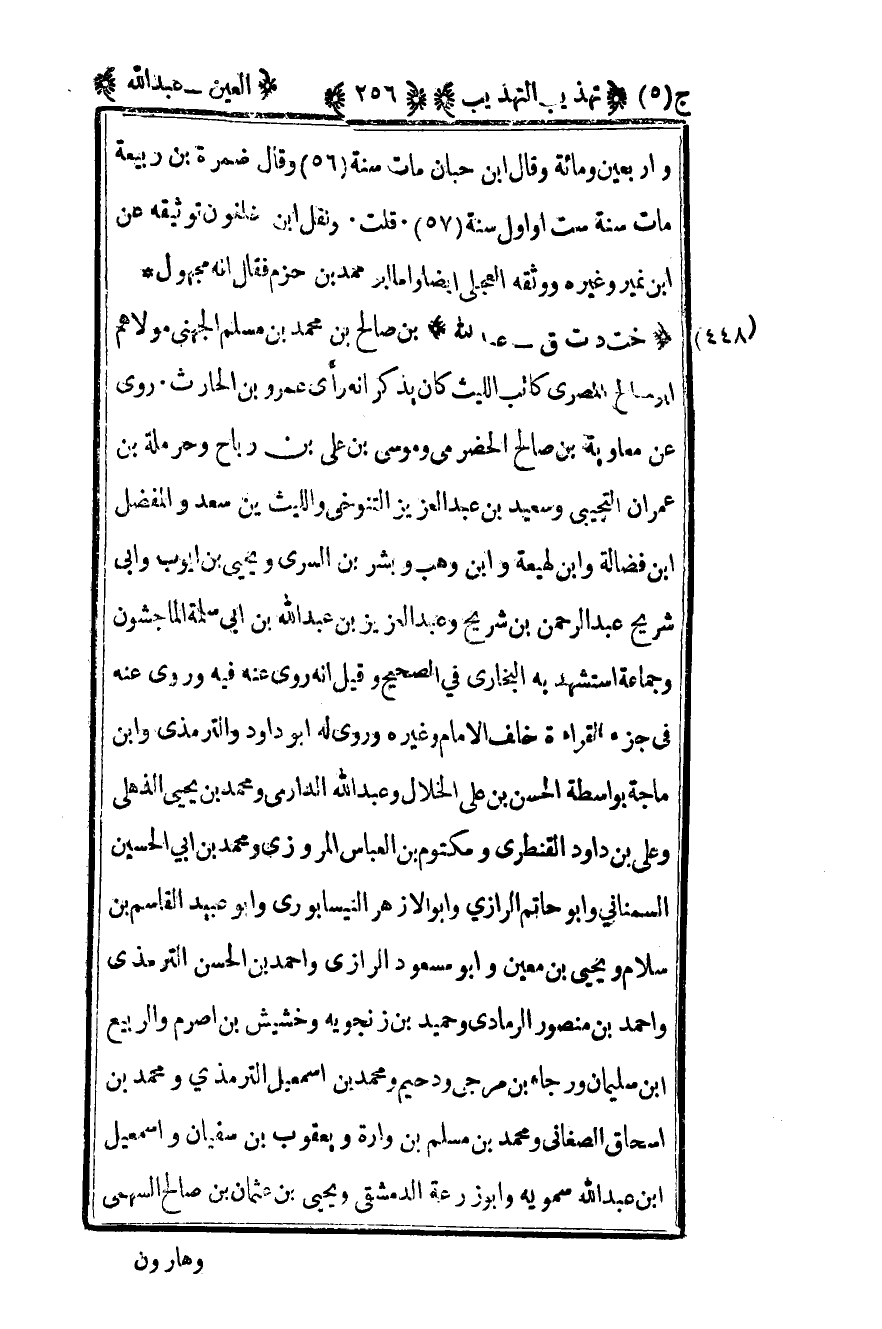 ج (٥) ﴿ تهذيب التهذيب ﴾ ﴿ ٢٥٦ ﴾ ﴿ العين – عبدالله ﴾
واربعين ومائة وقال ابن حبان مات سنة (٥٦) وقال ضمرة بن ربيعة
مات سنة ست او اول سنة (٥٧) · قلت · ونقل ابن خلفون توثيقه عن
ابن نمير وغيره ووثقه العجلى ايضا واما ابو محمد بن حزم فقال انه مجهول *
(٤٤٨) ﴿ خت د ت ق – عبد الله ﴾ بن صالح بن محمد بن مسلم الجهنى مولاهم
ابو صالح المصرى كاتب الليث كان يذكر انه رأى عمرو بن الحارث · روى
عن معاوية بن صالح الحضرمى وموسى بن على بن رباح وحرملة بن
عمران التجيبى وسعيد بن عبدالعزيز التنوخى والليث بن سعد والمفضل
ابن فضالة وابن لهيعة وابن وهب وبشر بن السرى ويحيى بن ايوب وابى
شريح عبدالرحمن بن شريح وعبدالعزيز بن عبدالله بن ابى سلمة الماجشون
وجماعة استشهد به البخارى في الصحيح وقيل انه روى عنه فيه وروى عنه
فى جزء القراءة خلف الامام وغيره وروى له ابو داود والترمذى وابن
ماجة بواسطة الحسن بن على الخلال وعبدالله الدارمى ومحمد بن يحيى الذهلى
وعلى بن داود القنطرى ومكتوم بن العباس المروزى ومحمد بن ابي الحسين
السمناني وابو حاتم الرازي وابوالازهر النيسابورى وابو عبيد القاسم بن
سلام ويحيى بن معين وابو مسعود الرازى واحمد بن الحسن الترمذى
واحمد بن منصور الرمادى وحميد بن زنجويه وخشيش بن اصرم والربيع
ابن سليمان ورجاء بن مرجى ودحيم ومحمد بن اسمعيل الترمذي ومحمد بن
اسحاق الصغانى ومحمد بن مسلم بن وارة ويعقوب بن سفيان واسمعيل
ابن عبدالله سمويه وابوزرعة الدمشقى ويحيى بن عثمان بن صالح السهمى
وهارون